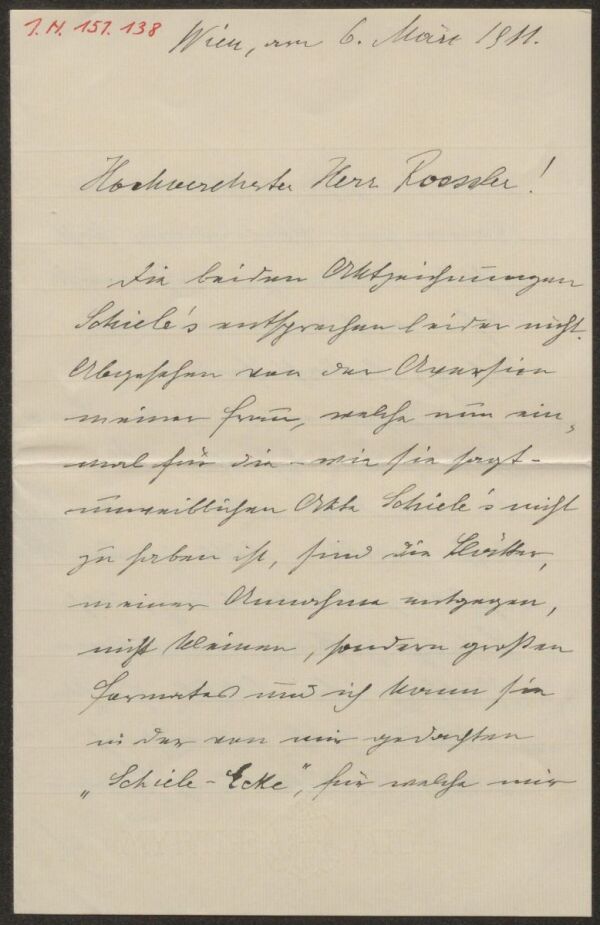 J.N. 151.138
Wien, am 6. März 1911.
Hochverehrter Herr Roessler!
Die beiden Aktzeichnungen
Schiele's entsprechen leider nicht.
Abgesehen von der Aversion
meiner Frau, welche nun ein-
mal für die – wie sie sagt –
unweiblichen Akte Schiele's nicht
zu haben ist, sind die Blätter,
meiner Annahme entgegen,
nicht kleinen, sondern großen
Formates und ich kann sie
in der von mir gedachten
„Schiele-Ecke", für welche mir